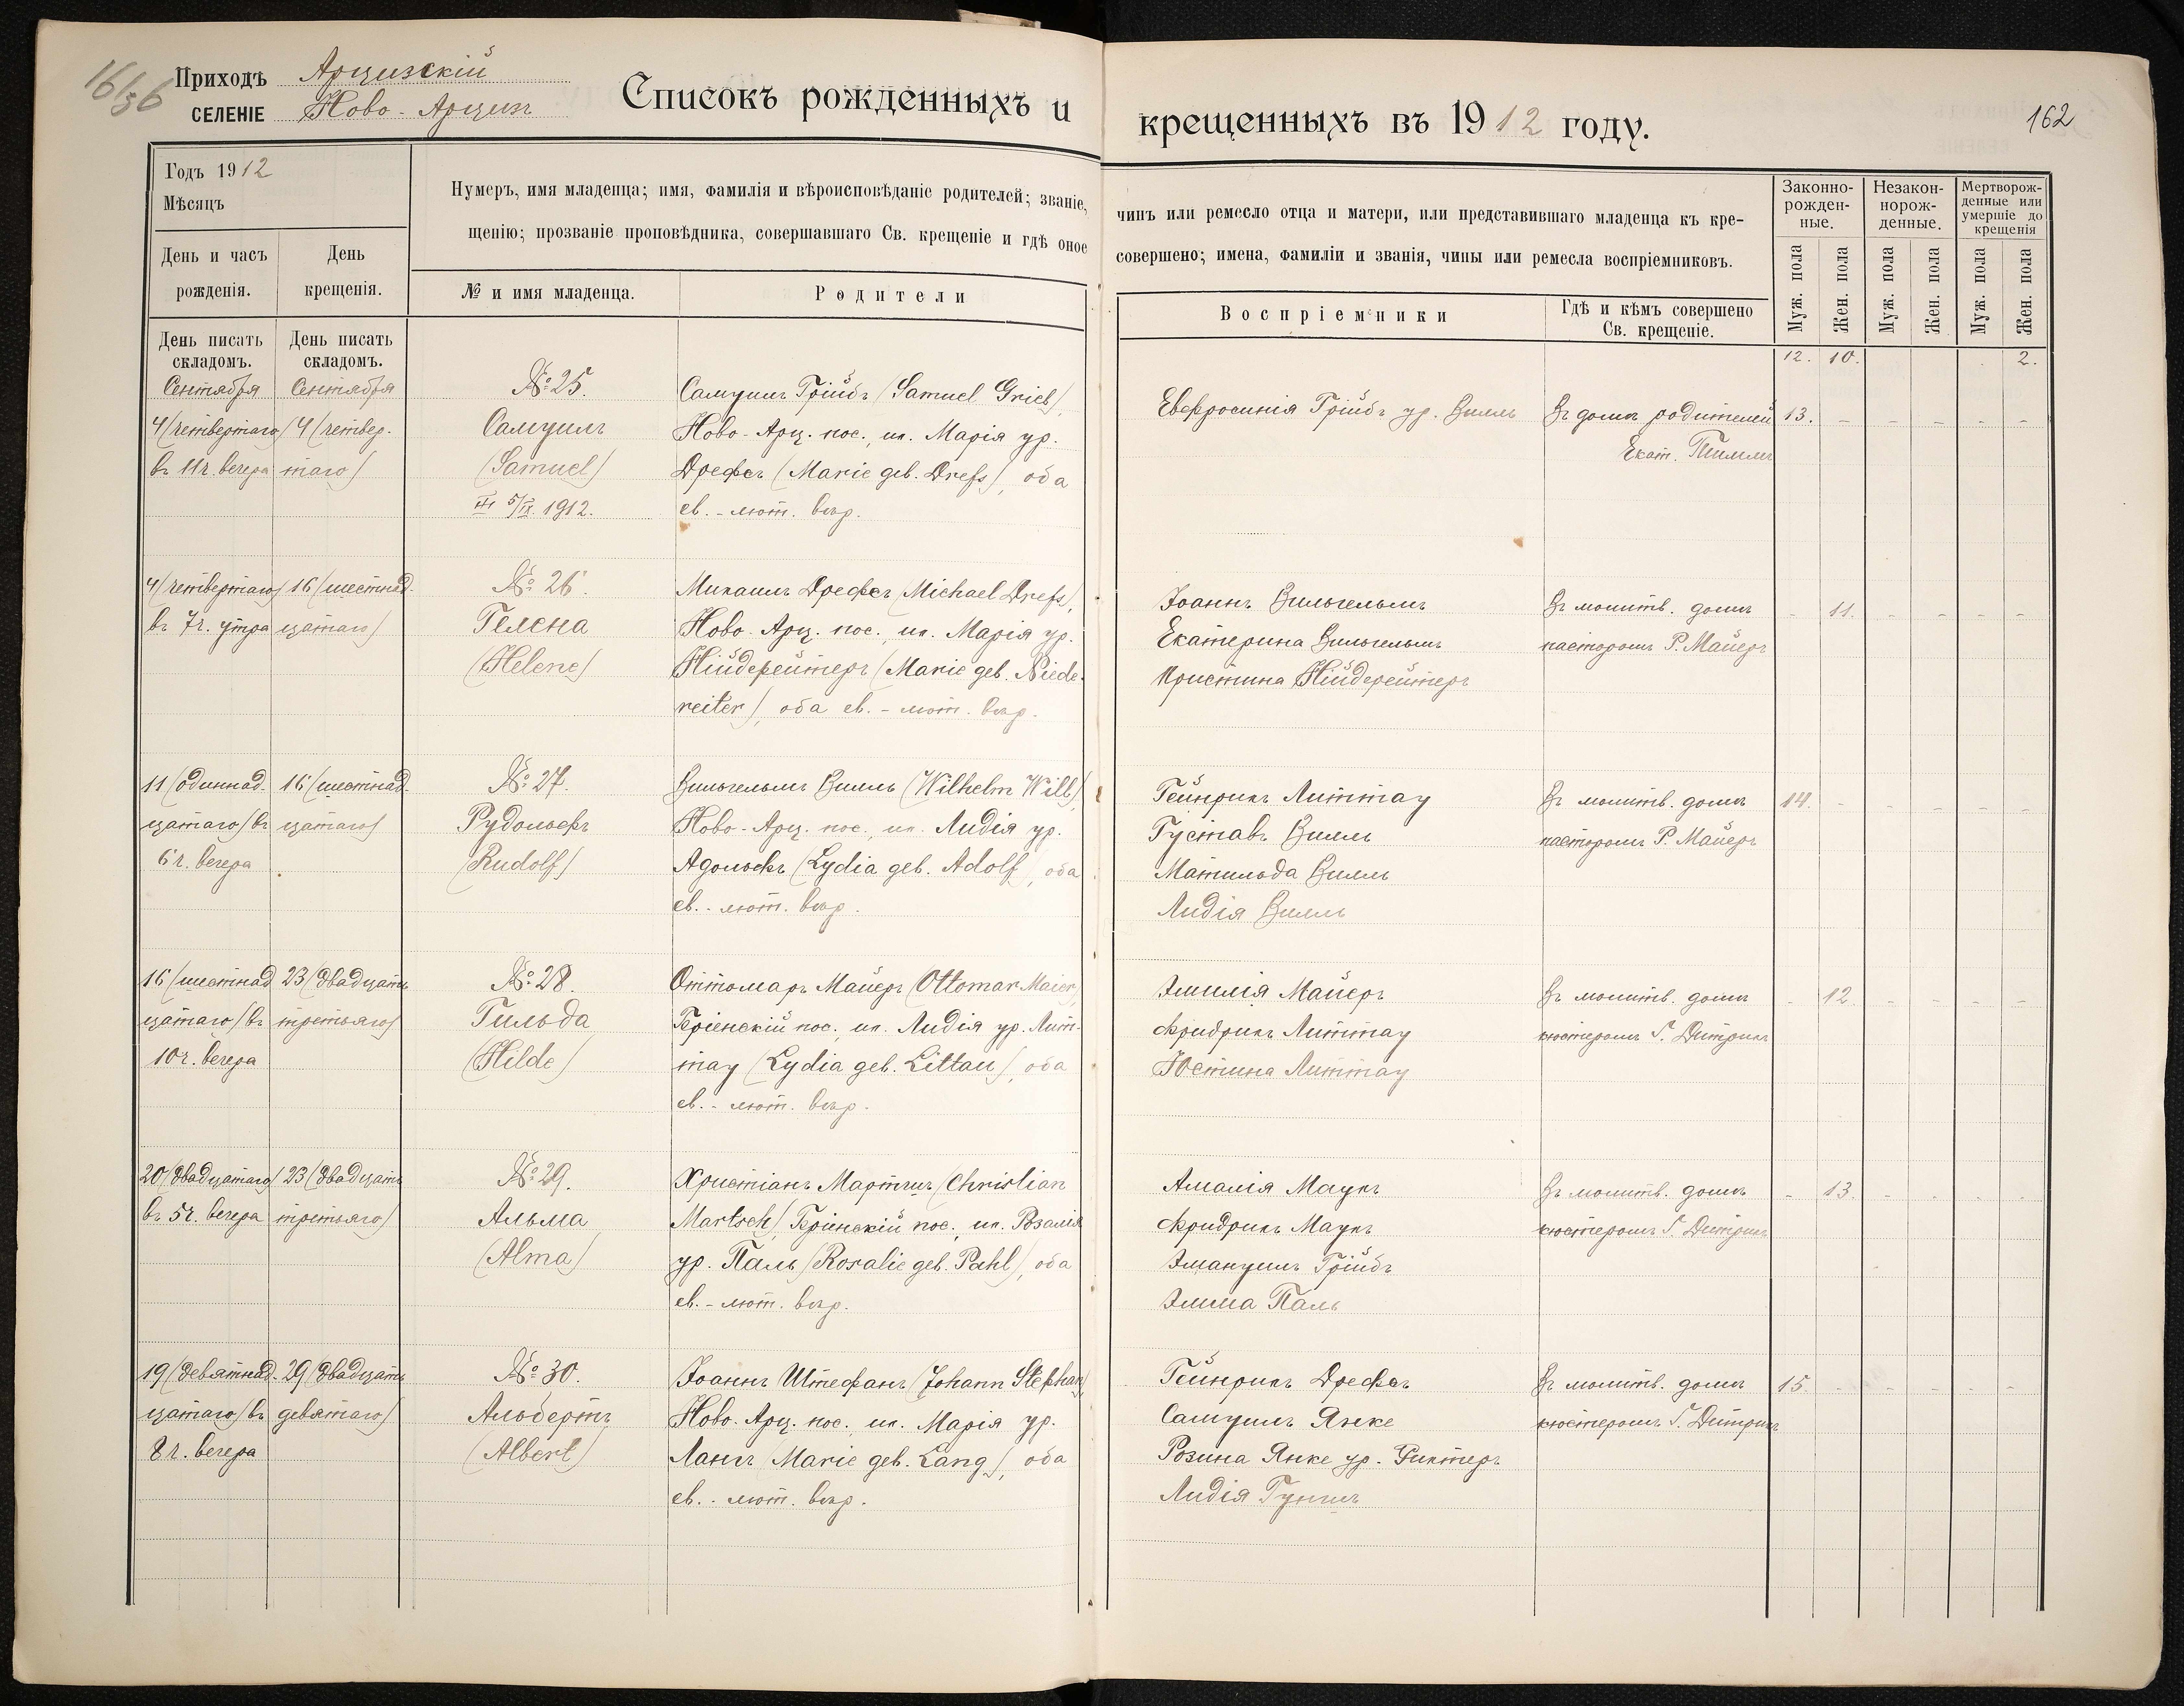 Приходъ Арцизскій
СЕЛЕНІЕ Ново-Арцизъ
Списокъ рожденныхъ и крещенныхъ въ 1912 году.
162
Годъ 1912
Мѣсяцъ
День и часъ рожденія.
День крещенія.
Нумеръ, имя младенца; имя, фамилія и вѣроисповѣданіе родителей; званіе, чинъ или ремесло отца и матери, или представившаго младенца къ кре-
щенію; прозваніе проповѣдника, совершавшаго Св. крещеніе и гдѣ оное совершено; имена, фамиліи и званія, чины или ремесла воспріемниковъ.
№ и имя младенца.
Родители
Воспріемники
Гдѣ и кѣмъ совершено
Св. крещеніе.
Законно-
рожден-
ные.
Незакон-
норож-
денные.
Мертворож-
денные или
умершіе до
крещенія
Муж. пола
Жен. пола
Муж. пола
Жен. пола
Муж. пола
Жен. пола
День писать
складомъ.
День писать
складомъ.
12. 10. 2.
Сентября
4/четвертаго/
въ 11ч. вечера
Сентября
4 (четвер-
таго)
№ 25.
Самуилъ
(Samuel)
5/IX. 1912.
Самуилъ Грійбъ (Samuel Grieb),
Ново-Арц. пос., ж. Марія ур.
Дрефсъ (Marie geb. Drefs), оба
ев.-лют. вѣр.
Евфросинія Грійбъ ур. Вилль
Въ домѣ родителей
Екат. Тиммъ
13. - - - - -
4/четвертаго/
въ 7ч. утра
16 (шестнад-
цатаго)
№ 26.
Гелена
(Helene)
Михаилъ Дрефсъ (Michael Drefs),
Ново-Арц. пос., ж. Марія ур.
Нійдерейтеръ (Marie geb. Niede-
reiter), оба ев.-лют. вѣр.
Іоаннъ Вильгельмъ
Екатерина Вильгельмъ
Христина Нійдерейтеръ
Въ молитв. домѣ
пасторомъ Р. Майеръ
- 11. - - - -
11 (одиннад-
цатаго) въ
6ч. вечера
16 (шестнад-
цатаго)
№ 27.
Рудольфъ
(Rudolf)
Вильгельмъ Вилль (Wilhelm Will)
Ново-Арц. пос., ж. Лидія ур.
Адольфъ (Lydia geb. Adolf), оба
ев.-лют. вѣр.
Гейнрихъ Литтау
Густавъ Вилль
Матильда Вилль
Лидія Вилль
Въ молитв. домѣ
пасторомъ Р. Майеръ
14. - - - - -
16 (шестнад-
цатаго) въ
10ч. вечера
23 (двадцать
третьяго)
№ 28.
Гильда
(Hilde)
Оттомаръ Майеръ (Ottomar Maier),
Бріенскій пос., ж. Лидія ур. Лит-
тау (Lydia geb. Littau), оба
ев.-лют. вѣр.
Эмилія Майеръ
Фридрихъ Литтау
Юстина Литтау
Въ молитв. домѣ
кюстеромъ Г. Дитрихъ
- 12. - - - -
20 (двадцатаго)
въ 5ч. вечера
23 (двадцать
третьяго)
№ 29.
Альма
(Alma)
Христіанъ Мартчъ (Christian
Martsch), Бріенскій пос., ж. Розалія
ур. Паль (Rosalie geb. Pahl), оба
ев.-лют. вѣр.
Амалія Маукъ
Фридрихъ Маукъ
Эмануилъ Грійбъ
Эмма Паль
Въ молитв. домѣ
кюстеромъ Г. Дитрихъ
- 13. - - - -
19 (девятнад-
цатаго) въ
8ч. вечера
29 (двадцать
девятаго)
№ 30.
Альбертъ
(Albert)
Іоаннъ Штефанъ (Johann Stephan),
Ново-Арц. пос., ж. Марія ур.
Лангъ (Marie geb. Lang), оба
ев.-лют. вѣр.
Гейнрихъ Дрефсъ
Самуилъ Янке
Розина Янке ур. Рихтеръ
Лидія
Въ молитв. домѣ
кюстеромъ Г. Дитрихъ
15. - - - - -